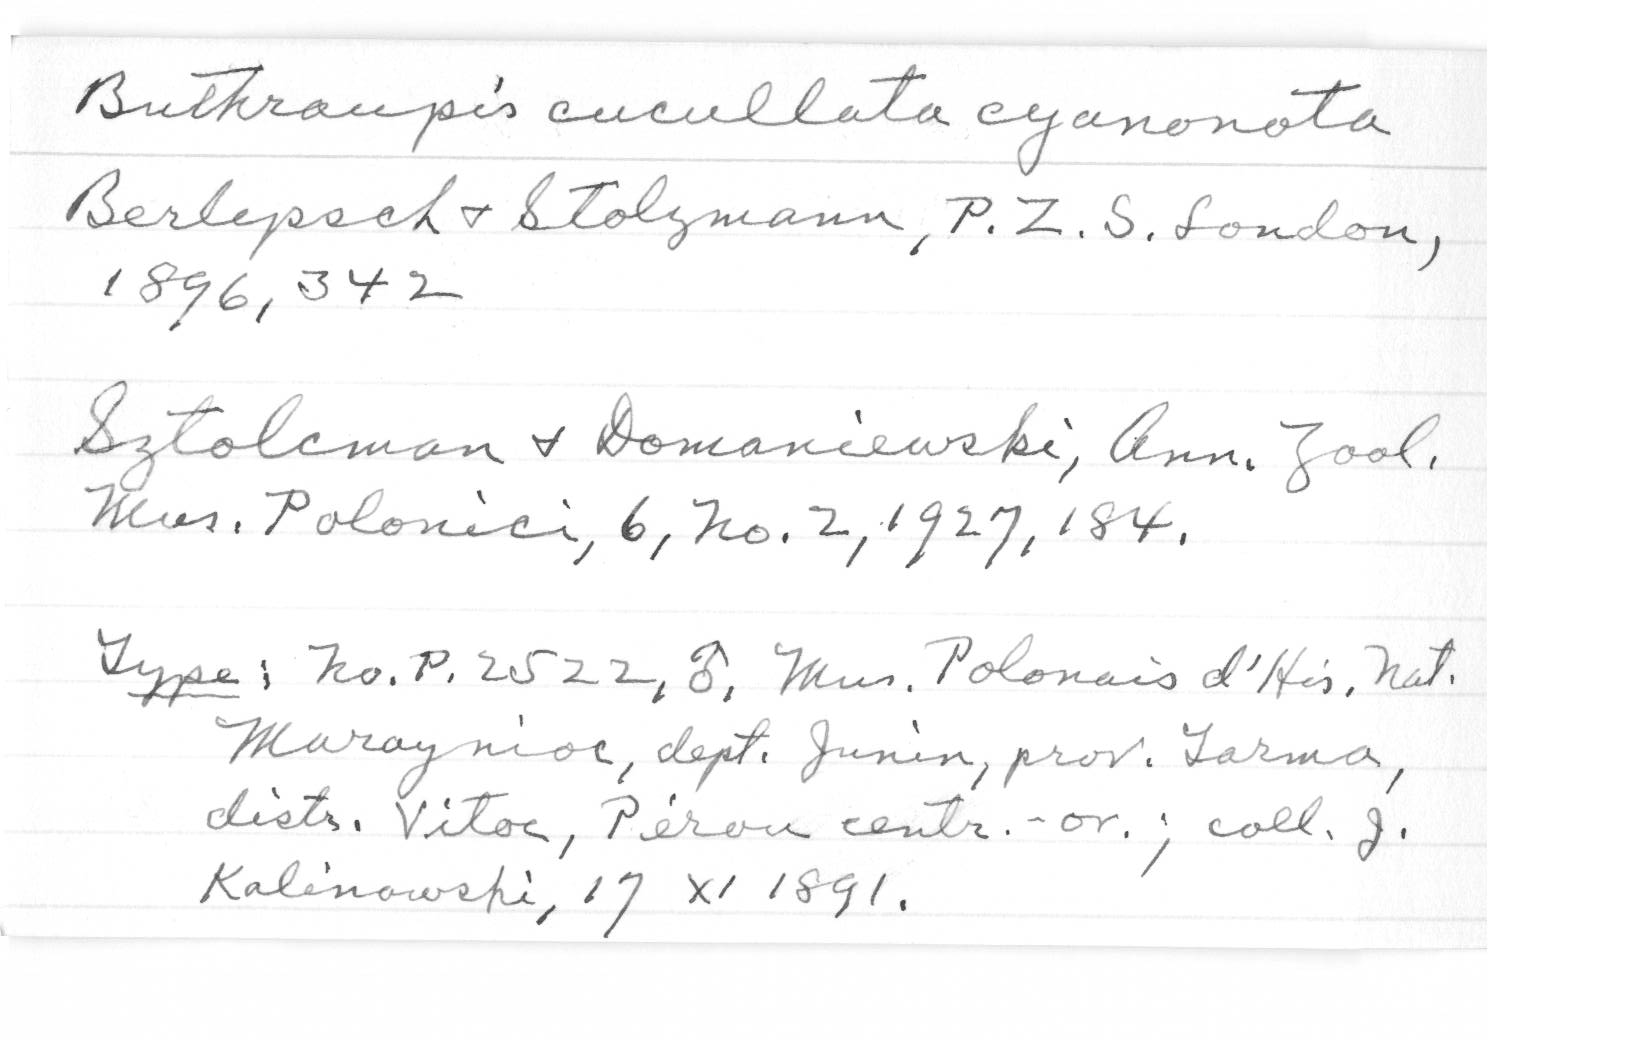 Buthraupis cucullata cyanonota
Berlepsch & Stolzmann, P. Z. S. London,
1896, 342
Sztolcman & Domaniewski, Ann. Zool.
Mus. Polonici, 6, No. 2, 1927, 184.
Type: No. P. 2522, ♂, Mus. Polonais d'His. Nat.
Maraynioc, dept. Junin, prov. Tarma,
distr. Vitoc, Pérou centr.-or.; coll. J.
Kalinowski, 17 XI 1891.